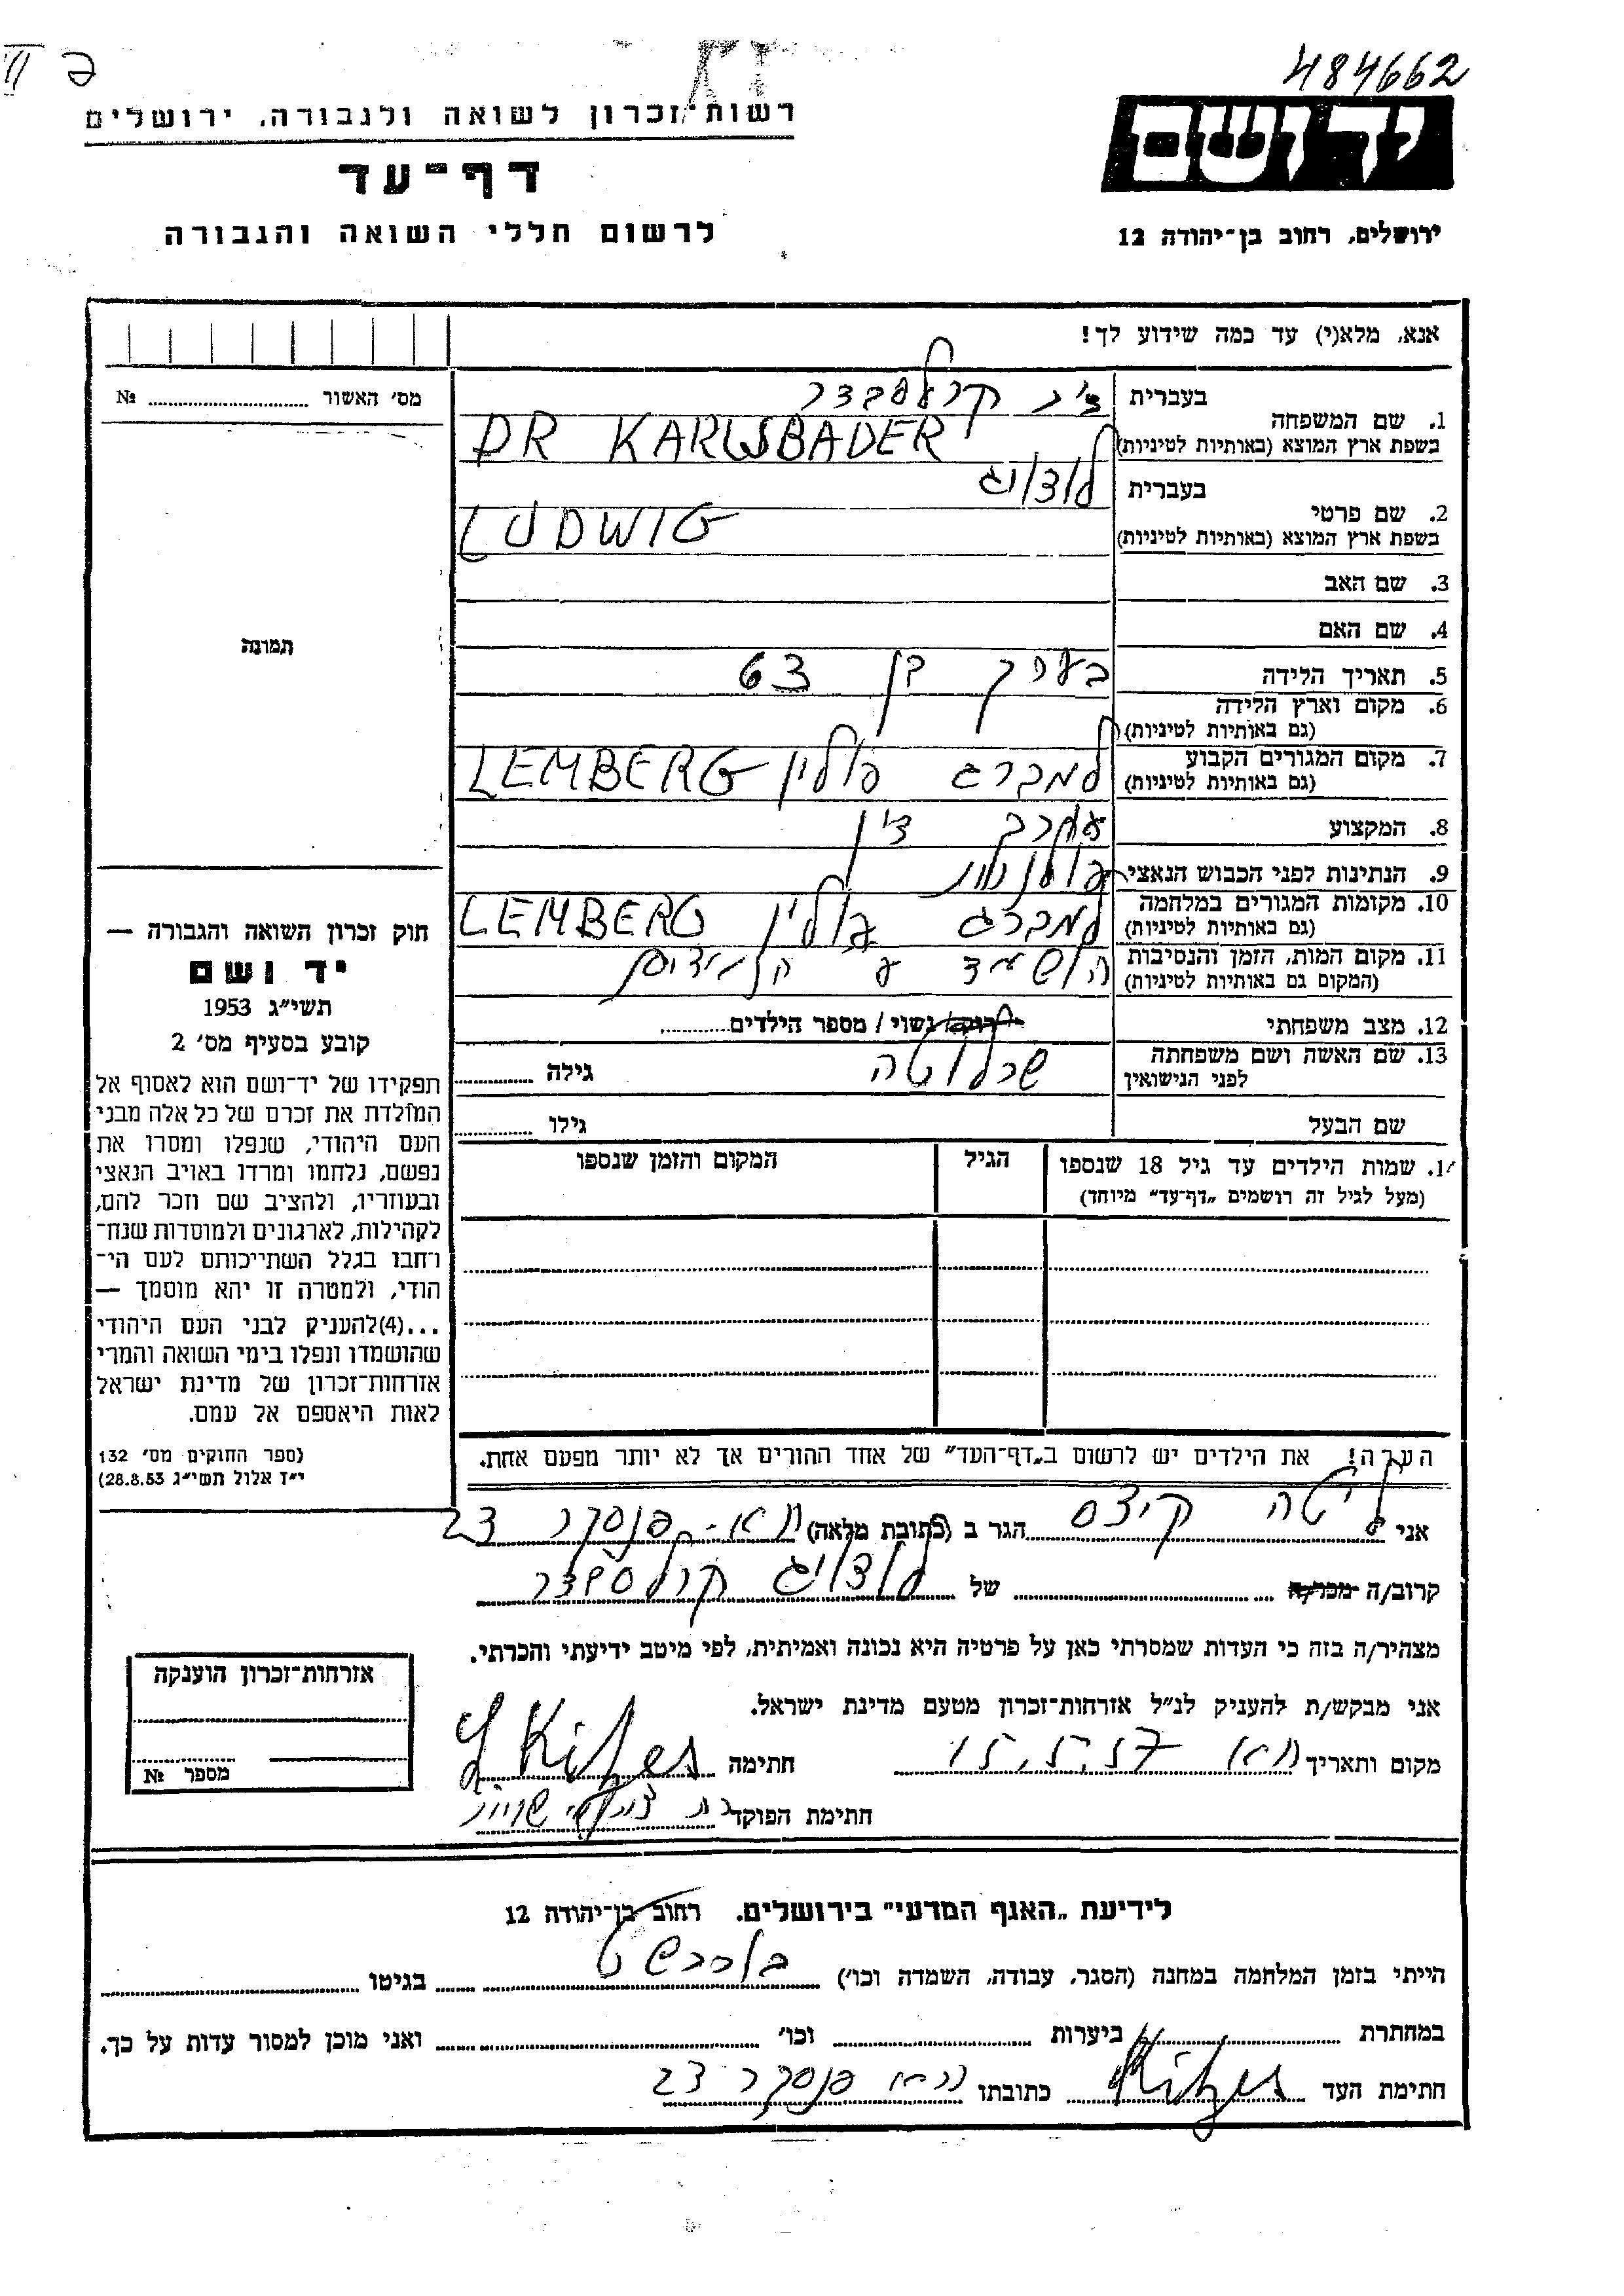 484662
רשות-זכרון לשואה ולגבורה, ירושלים
יד ושם
דף-עד
לרשום חללי השואה והגבורה
ירושלים, רחוב בן-יהודה 12
אנא, מלא(י) עד כמה שידוע לך!
מס׳ האשור № 
בעברית ד״ר קרלסבדר
1. שם המשפחה
בשפת ארץ המוצא (באותיות לטיניות) DR KARLSBADER
בעברית לודויג
2. שם פרטי
בשפת ארץ המוצא (באותיות לטיניות) LUDWIG
3. שם האב
4. שם האם
תמונה
5. תאריך הלידה בערך בן 63
6. מקום וארץ הלידה
(גם באותיות לטיניות)
7. מקום המגורים הקבוע למברג פולין LEMBERG
(גם באותיות לטיניות)
8. המקצוע עורך דין
9. הנתינות לפני הכבוש הנאצי פולנית
10. מקומות המגורים במלחמה למברג פולין LEMBERG
(גם באותיות לטיניות)
11. מקום המות, הזמן והנסיבות הושמד ע
(המקום גם באותיות לטיניות)
12. מצב משפחתי רווק/ נשוי / מספר הילדים
13. שם האשה ושם משפחתה שרלוטה גילה
לפני הנישואין
שם הבעל גילו
1. שמות הילדים עד גיל 18 שנספו הגיל המקום והזמן שנספו
(מעל לגיל זה רושמים „דף-עד״ מיוחד)
חוק זכרון השואה והגבורה —
יד ושם
תשי״ג 1953
קובע בסעיף מס׳ 2
תפקידו של יד-ושם הוא לאסוף אל
המולדת את זכרם של כל אלה מבני
העם היהודי, שנפלו ומסרו את
נפשם, נלחמו ומרדו באויב הנאצי
ובעוזריו, ולהציב שם וזכר להם,
לקהילות, לארגונים ולמוסדות שנח־
רחבו בגלל השתייכותם לעם הי־
הודי, ולמטרה זו יהא מוסמך —
...(4)להעניק לבני העם היהודי
שהושמדו ונפלו בימי השואה והמרי
אזרחות-זכרון של מדינת ישראל
לאות היאספם אל עמם.
(ספר החוקים מס׳ 132
י״ז אלול תשי״ג 28.8.53)
הערה! את הילדים יש לרשום ב„דף-העד״ של אחד ההורים אך לא יותר מפעם אחת.
אני ליטה קיצס הגר ב (כתובת מלאה) ת״א - פנסקר 23
קרוב/ה מכר/ה של לודויג קרלסבדר
מצהיר/ה בזה כי העדות שמסרתי כאן על פרטיה היא נכונה ואמיתית, לפי מיטב ידיעתי והכרתי.
אני מבקש/ת להעניק לנ״ל אזרחות-זכרון מטעם מדינת ישראל.
מקום ותאריך ת״א 15.5.57 חתימה L Kitzes
חתימת הפוקד
אזרחות-זכרון הוענקה
מספר №
לידיעת „האגף המדעי״ בירושלים, רחוב בן-יהודה 12
הייתי בזמן המלחמה במחנה (הסגר, עבודה, השמדה וכו׳) בגיטו
במחתרת ביערות וכו׳ ואני מוכן למסור עדות על כך.
חתימת העד Kitzes כתובתו ת״א פנסקר 23